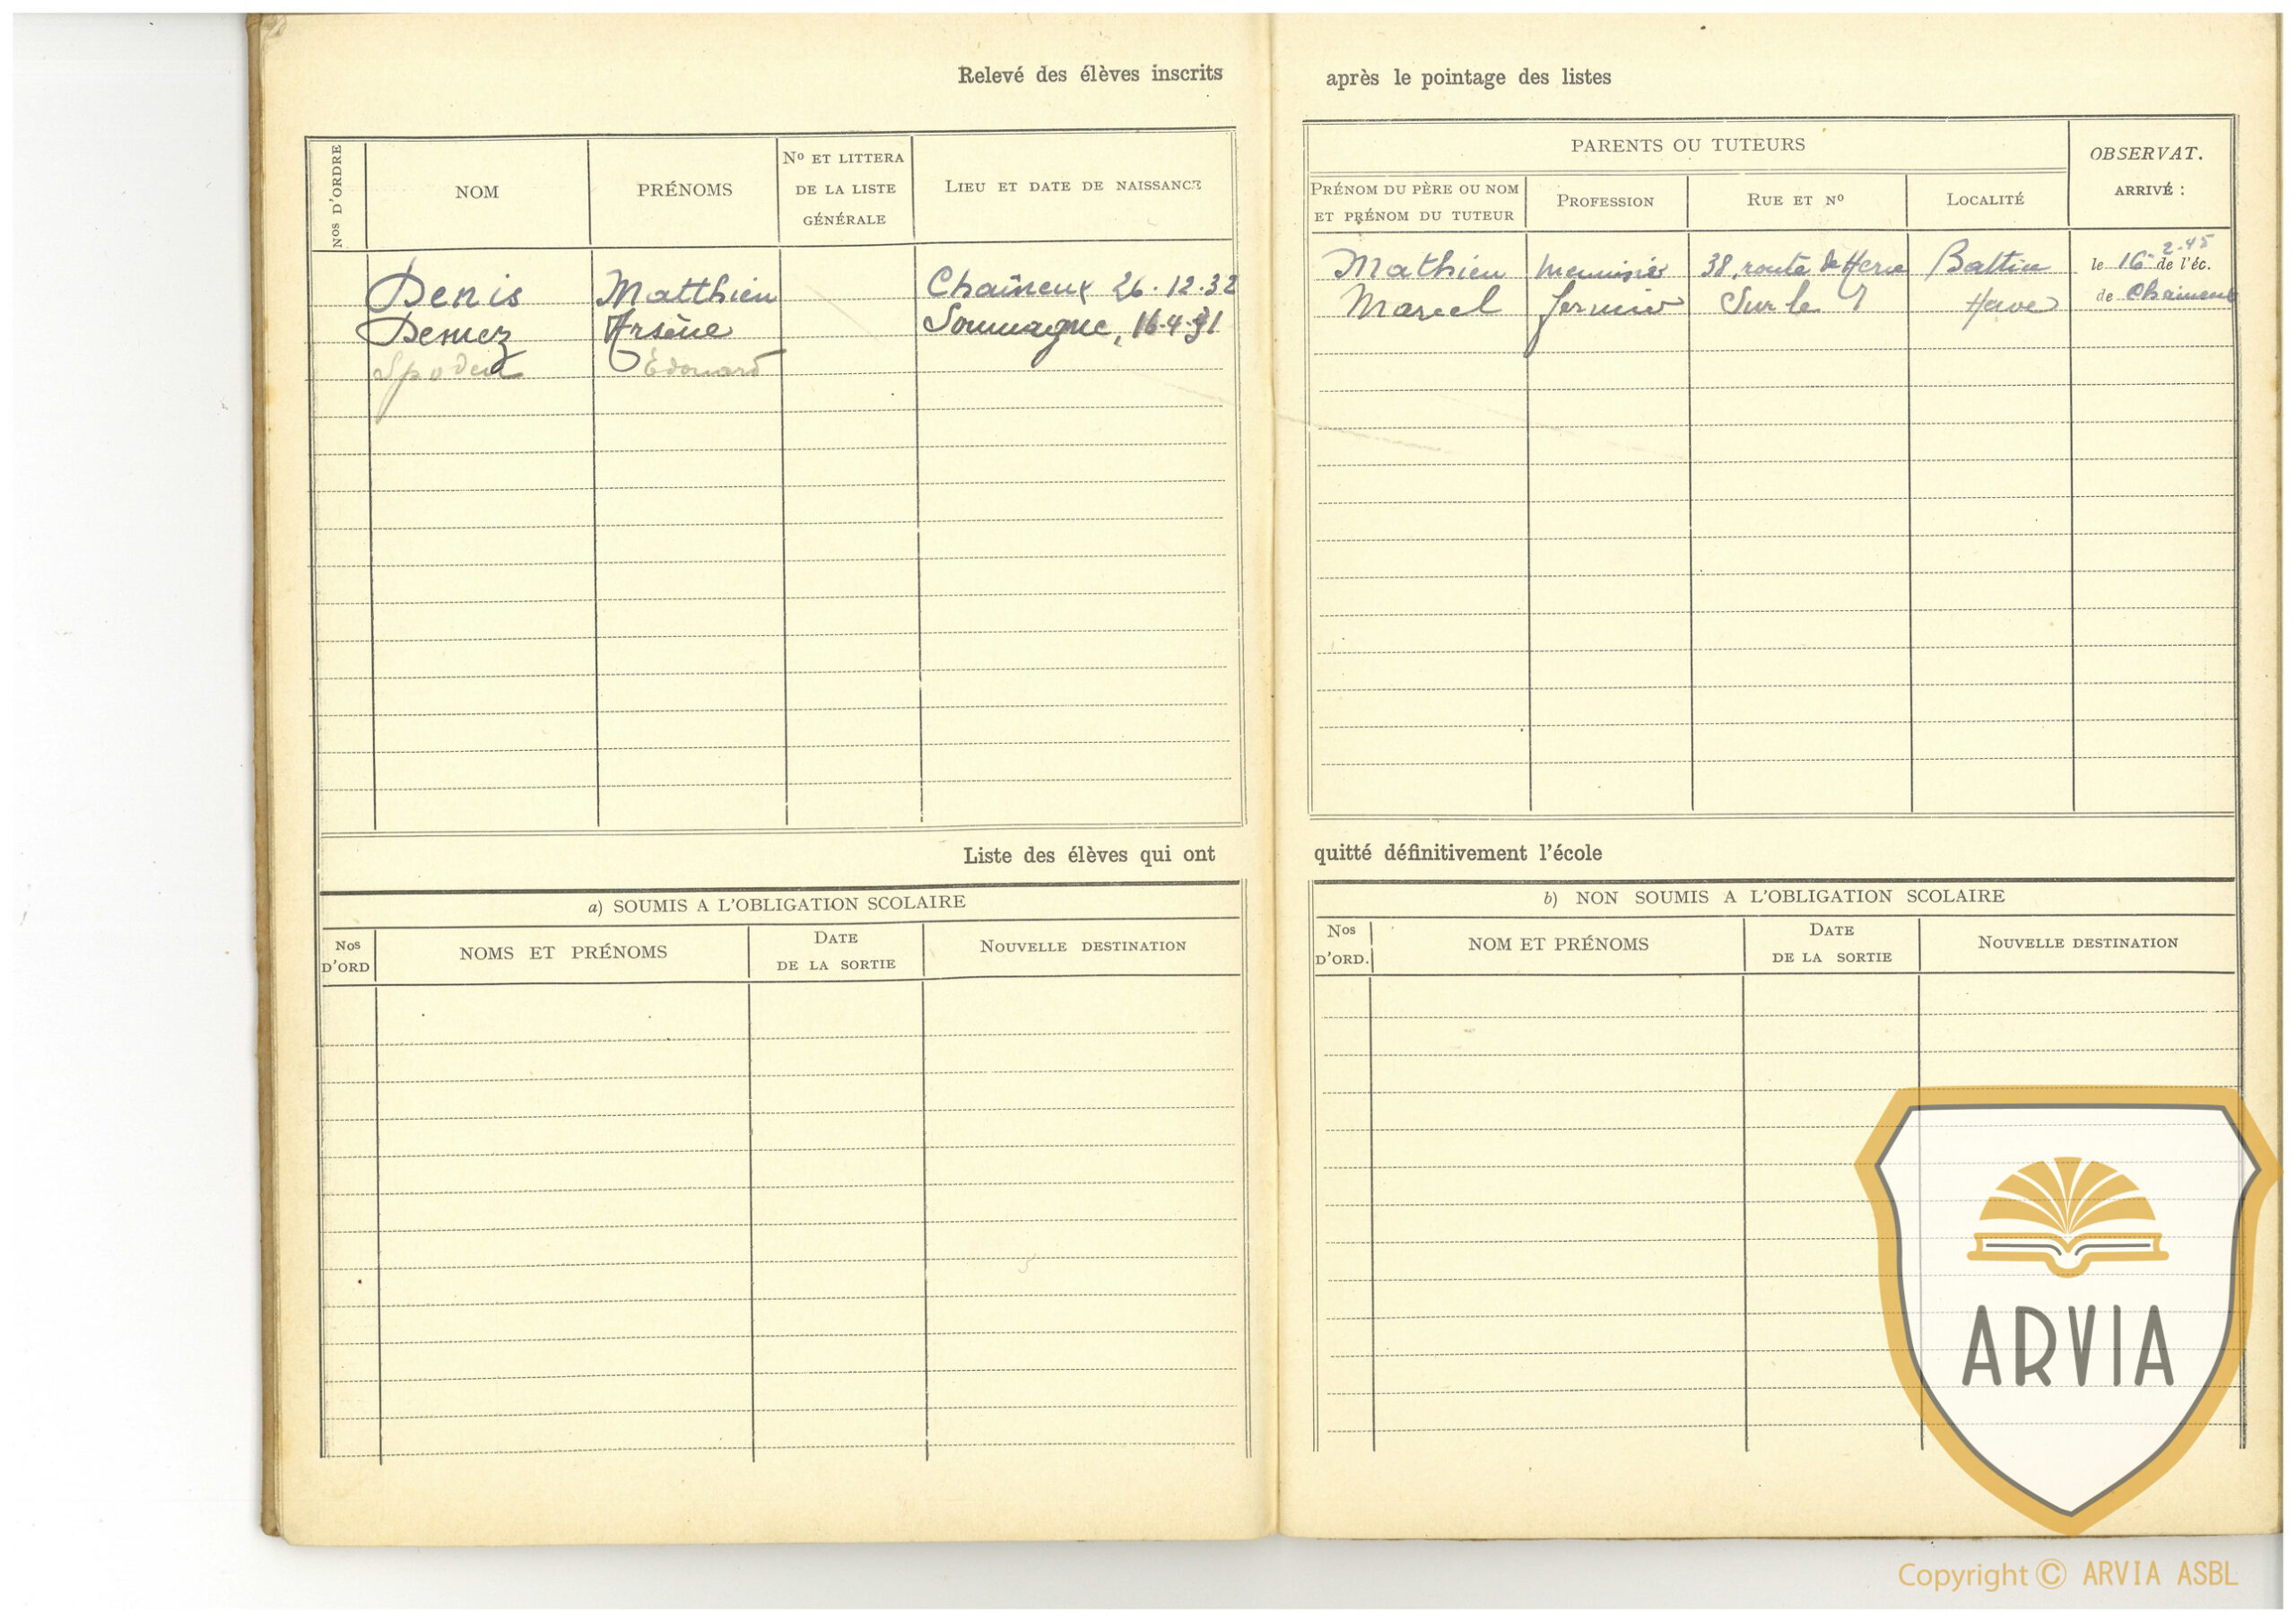 Relevé des élèves inscrits après le pointage des listes
NOS D'ORDRE
NOM
PRÉNOMS
Nº ET LITTERA
DE LA LISTE
GÉNÉRALE
LIEU ET DATE DE NAISSANCE
PARENTS OU TUTEURS
PRÉNOM DU PÈRE OU NOM
ET PRÉNOM DU TUTEUR
PROFESSION
RUE ET Nº
LOCALITÉ
OBSERVAT.
ARRIVÉ :
Denis Matthieu Chaîneux 26.12.32 Mathieu menuisier 38, route de Herve Battice le 16-2-45 de l'éc.
Demez Arsène Soumagne, 16.4.31 Marcel fermier Sur le Herve de Chaineux
Édouard
Liste des élèves qui ont quitté définitivement l'école
a) SOUMIS A L'OBLIGATION SCOLAIRE
Nos
D'ORD
NOMS ET PRÉNOMS
DATE
DE LA SORTIE
NOUVELLE DESTINATION
b) NON SOUMIS A L'OBLIGATION SCOLAIRE
Nos
D'ORD.
NOM ET PRÉNOMS
DATE
DE LA SORTIE
NOUVELLE DESTINATION
ARVIA
Copyright © ARVIA ASBL